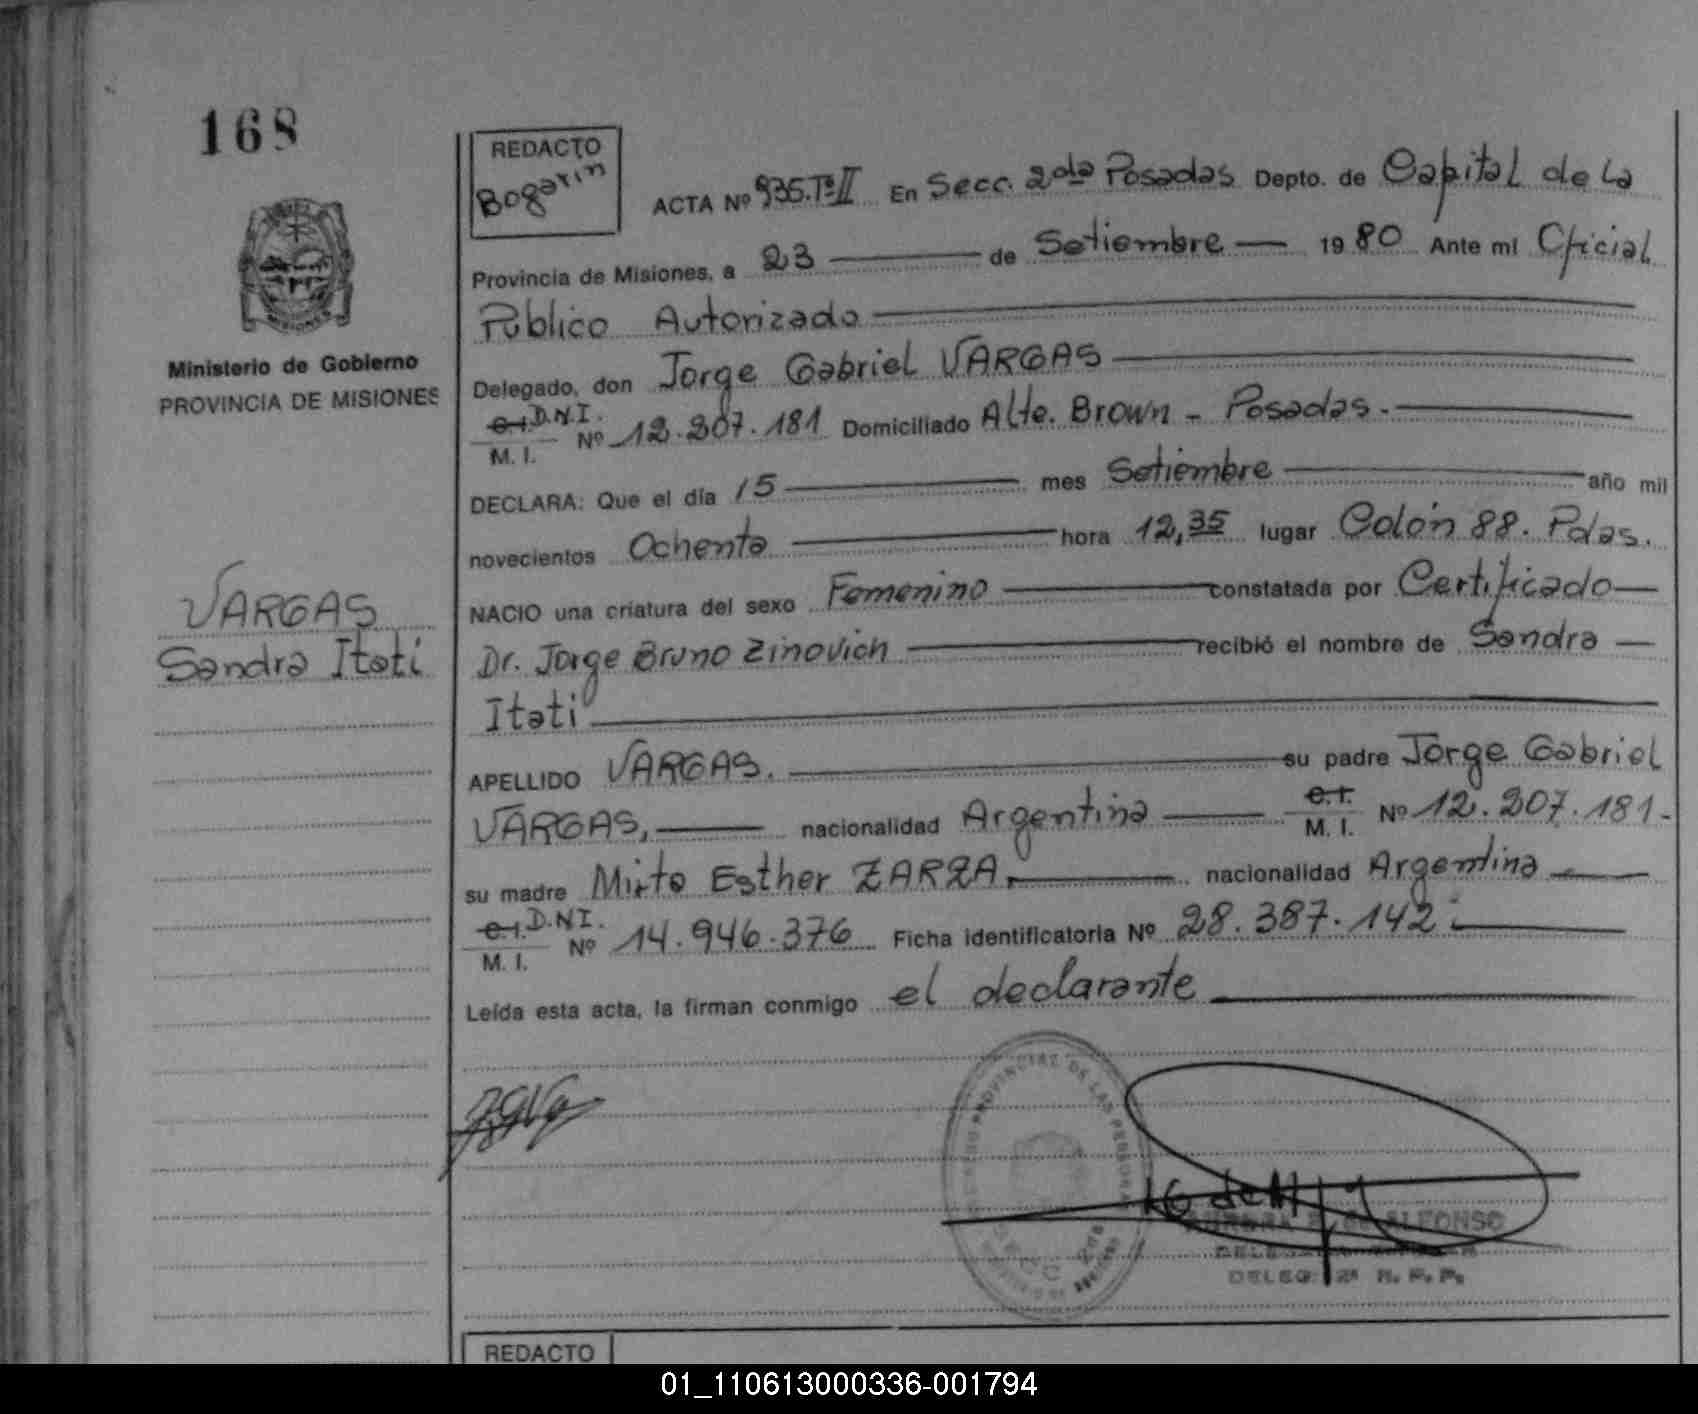 168
REDACTO
Bogarin
ACTA Nº 935.Tº II En Secc. 2da Posadas Depto. de Capital de La
Provincia de Misiones, a 23 de Setiembre 1980 Ante mí Oficial
Público Autorizado
Delegado, don Jorge Gabriel VARGAS
C.I. D.N.I.
M. I. Nº 12.207.181 Domiciliado Alte. Brown - Posadas.-
DECLARA: Que el día 15 mes Setiembre año mil
novecientos Ochenta hora 12,35 lugar Colón 88. Pdas.
NACIO una criatura del sexo Femenino constatada por Certificado
Dr. Jorge Bruno Zinovich recibió el nombre de Sandra
Itati
APELLIDO VARGAS. su padre Jorge Gabriel
VARGAS, nacionalidad Argentina C.I. M. I. Nº 12.207.181-
su madre Mirta Esther ZARZA. nacionalidad Argentina
C.I. D.N.I.
M. I. Nº 14.946.376 Ficha Identificatoria Nº 28.387.142
Leída esta acta, la firman conmigo el declarante
Ministerio de Gobierno
PROVINCIA DE MISIONES
MISIONES
VARGAS
Sandra Itati
PROVINCIAL DE LAS PERSONAS
ALFONSO
DELEG. 2ª R. P. P.
REDACTO
01_110613000336-001794